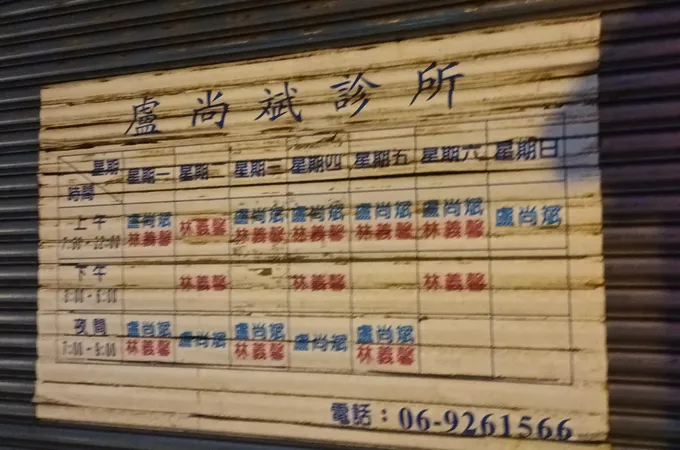 盧尚斌診所
星期 星期一 星期二 星期三 星期四 星期五 星期六 星期日
時間
上午 盧尚斌 盧尚斌 盧尚斌 盧尚斌 盧尚斌 盧尚斌
林義馨 林義馨 林義馨 林義馨 林義馨 林義馨
下午 林義馨 林義馨 林義馨
夜間 盧尚斌 盧尚斌 盧尚斌 盧尚斌 盧尚斌
林義馨 林義馨 林義馨
電話：06-9261566